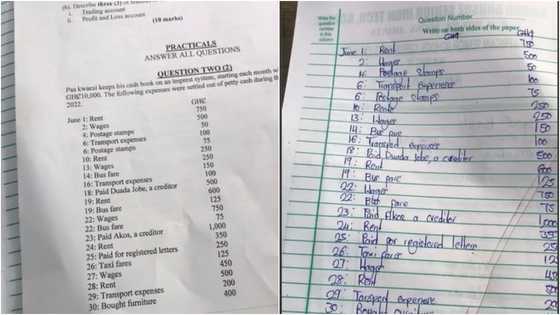 (b). Describe three (3)
i. Trading account
ii. Profit and Loss account
(10 marks)
PRACTICALS
ANSWER ALL QUESTIONS
QUESTION TWO (2)
Paa kwarsi keeps his cash book on an imprest system, starting each month w
GH₵10,000. The following expenses were settled out of petty cash during th
2022.
GH₵
June 1: Rent 750
2: Wages 500
4: Postage stamps 50
6: Transport expenses 100
6: Postage stamps 75
10: Rent 250
13: Wages 250
14: Bus fare 150
16: Transport expenses 100
18: Paid Duada Jobe, a creditor 500
19: Rent 600
19: Bus fare 125
22: Wages 750
22: Bus fare 75
23: Paid Akos, a creditor 1,000
24: Rent 350
25: Paid for registered letters 250
26: Taxi fares 125
27: Wages 450
28: Rent 500
29: Transport expenses 200
30: Bought furniture 400
Write the
question
number
in this
column
Question Number
Write on both sides of the paper
June 1: Rent 750
2: Wages 500
4: Postage Stamps 50
6: Transport expenses 100
6: Postage Stamps 75
10: Rent 250
13: Wages 250
14: Bus fare 150
16: Transport expenses 100
18: Paid Duada Jobe, a creditor 500
19: Rent 600
19: Bus fare 125
22: Wages 750
22: Bus fare 75
23: Paid Akos a creditor 1000
24: Rent 350
25: Paid for registered letters
26: Taxi fares
27: Wages
28: Rent
29: Transport expense
30: Bought